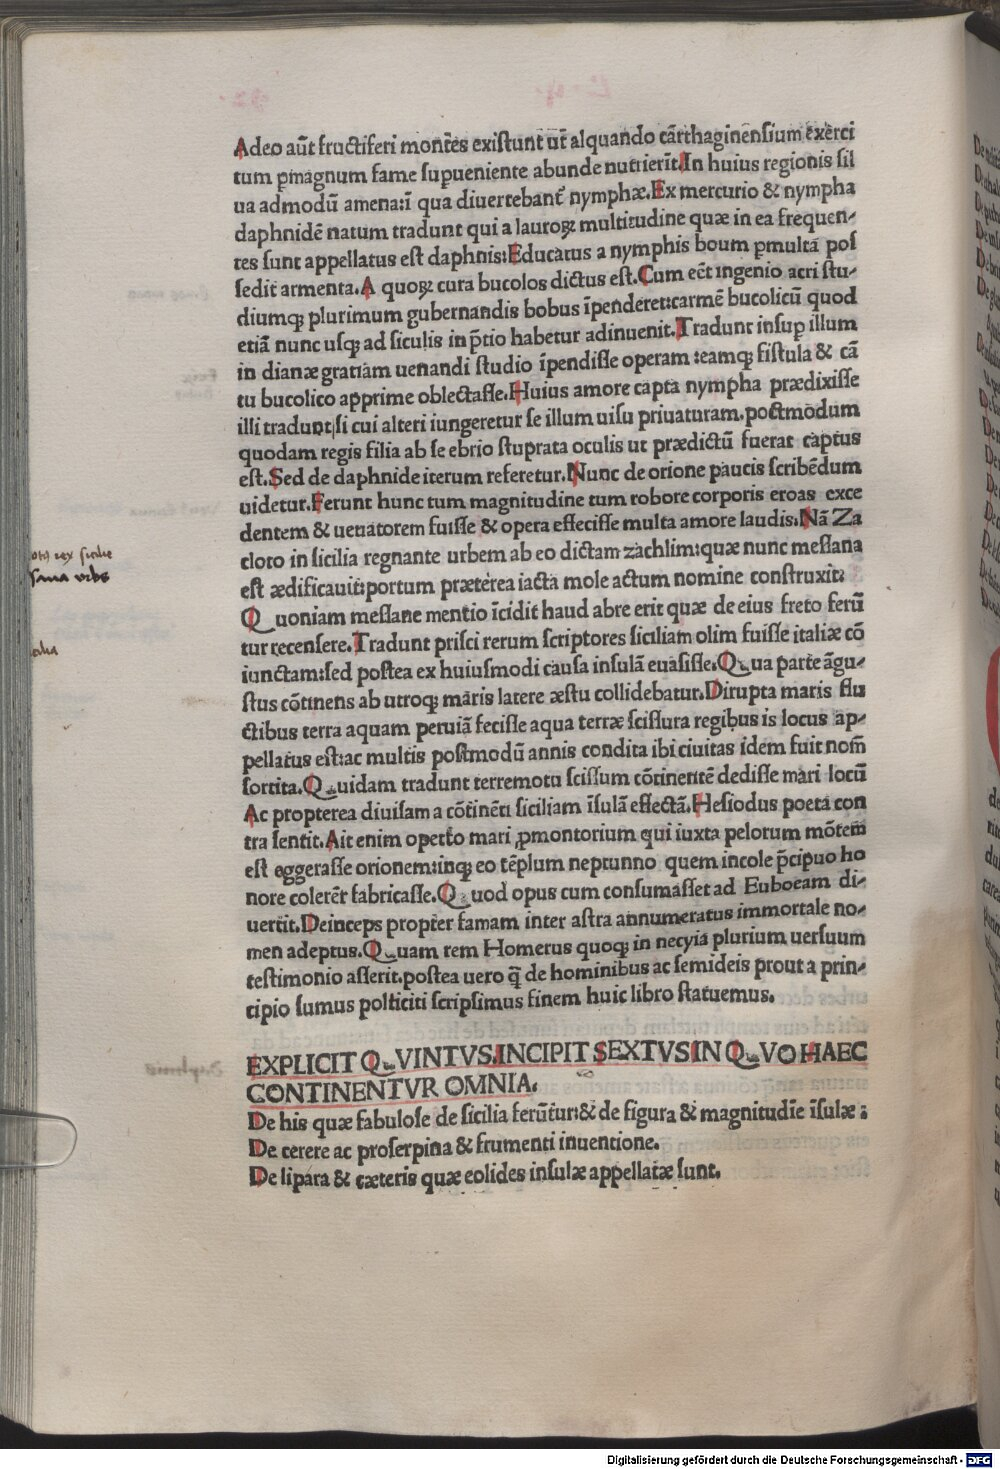 Adeo aūt fructiferi montēs existunt ut̄ alquando cārthaginensium exerci
tum ꝑmagnum fame superueniente abunde nutrierīt. In huius regionis sil
ua admodū amena: ī qua diuertebant̄ nymphæ. Ex mercurio & nympha
daphnidē natum tradunt qui a lauroꝝ multitudine quæ in ea frequen-
tes sunt appellatus est daphnis: Educatus a nymphis boum ꝑmultā pos
sedit armenta. A quoꝝ cura bucolos dictus est. Cum eēt ingenio acri stu-
diumqꝫ plurimum gubernandis bobus īpenderet: carmē bucolicū quod
etiā nunc usqꝫ ad siculis in p̄tio habetur adinuenit. Tradunt insuꝑ illum
in dianæ gratiam uenandi studio īpendisse operam: eamqꝫ fistula & cā
tu bucolico apprime oblectasse. Huius amore capta nympha prædixisse
illi tradunt, si cui alteri iungeretur se illum uisu priuaturam. postmodum
quodam regis filia ab se ebrio stuprata oculis ut prædictū fuerat captus
est. Sed de daphnide iterum referetur. Nunc de orione paucis scribēdum
uidetur. Ferunt hunc tum magnitudine tum robore corporis eroas exce
dentem & uenatorem fuisse & opera effecisse multa amore laudis. Nā Za
cloto in sicilia regnante urbem ab eo dictam zachlim: quæ nunc messana
est ædificauit: portum præterea iacta mole actum nomine construxit:
Quoniam messane mentio īcidit haud abre erit quæ de eius freto ferū
tur recensere. Tradunt prisci rerum scriptores siciliam olim fuisse italiæ cō
iunctam: sed postea ex huiusmodi causa insulā euasisse. Qua parte āgu-
stus cōtinens ab utroqꝫ maris latere æstu collidebatur. Dirupta maris flu
ctibus terra aquam peruiā fecisse aqua terræ scissura regibus is locus ap-
pellatus est: ac multis postmodū annis condita ibi ciuitas idem fuit nom̄
sortita. Quidam tradunt terremotu scissum cōtinentē dedisse mari locū
Ac propterea diuisam a cōtinēti siciliam īsulā effectā. Hesiodus poeta con
tra sentit. Ait enim operto mari ꝓmontorium qui iuxta pelorum mōtem
est eggerasse orionem: inqꝫ eo tēplum neptunno quem incole p̄cipuo ho
nore colerēt fabricasse. Quod opus cum consumasset ad Euboeam di-
uertit. Deinceps propter famam inter astra annumeratus immortale no-
men adeptus. Quam rem Homerus quoqꝫ in necyia plurium uersuum
testimonio asserit. postea uero q̄ de hominibus ac semideis prout a prin-
cipio sumus polticiti scripsimus finem huic libro statuemus.
EXPLICIT QVINTVS. INCIPIT SEXTVS IN QVO HAEC
CONTINENTVR OMNIA.
De his quæ fabulose de sicilia ferūtur: & de figura & magnitudīe īsulæ:
De cerere ac proserpina & frumenti inuentione.
De lipara & cæteris quæ eolides insulæ appellatæ sunt.
rex sicilie
urbs
Digitalisierung gefördert durch die Deutsche Forschungsgemeinschaft - DFG